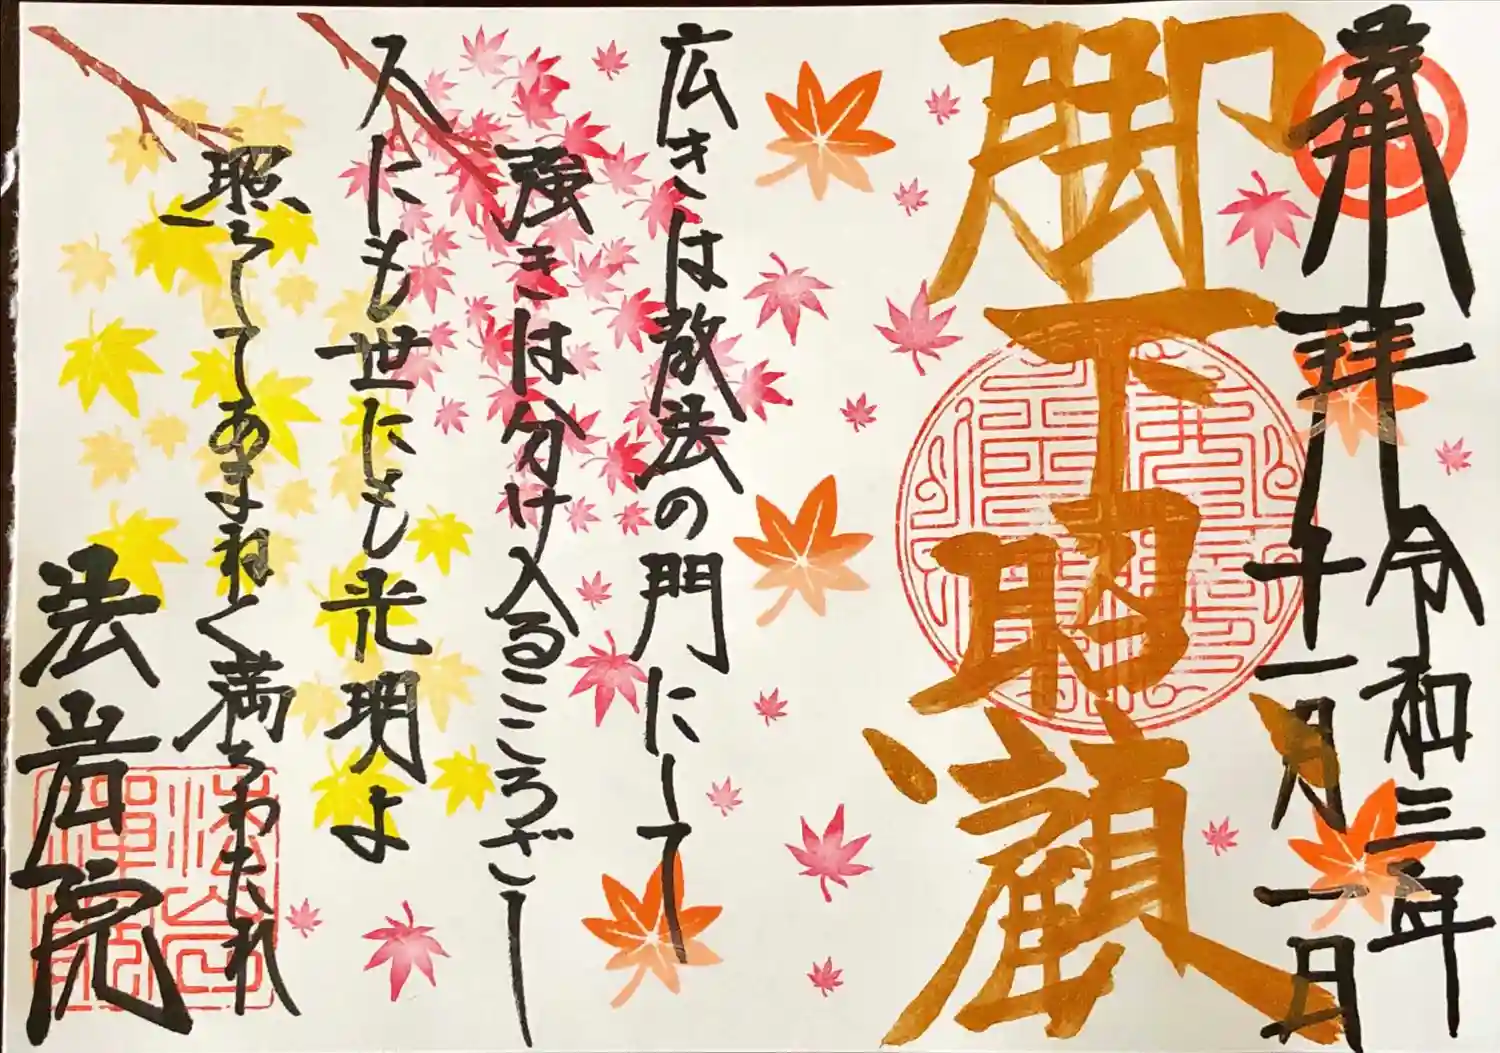 奉拝
令和三年
十一月一日
脚下照顧
広きは教法の門にして
強きは分け入るこころざし
人にも世にも光明よ
照らしてあまねく満ちわたれ
法岩院